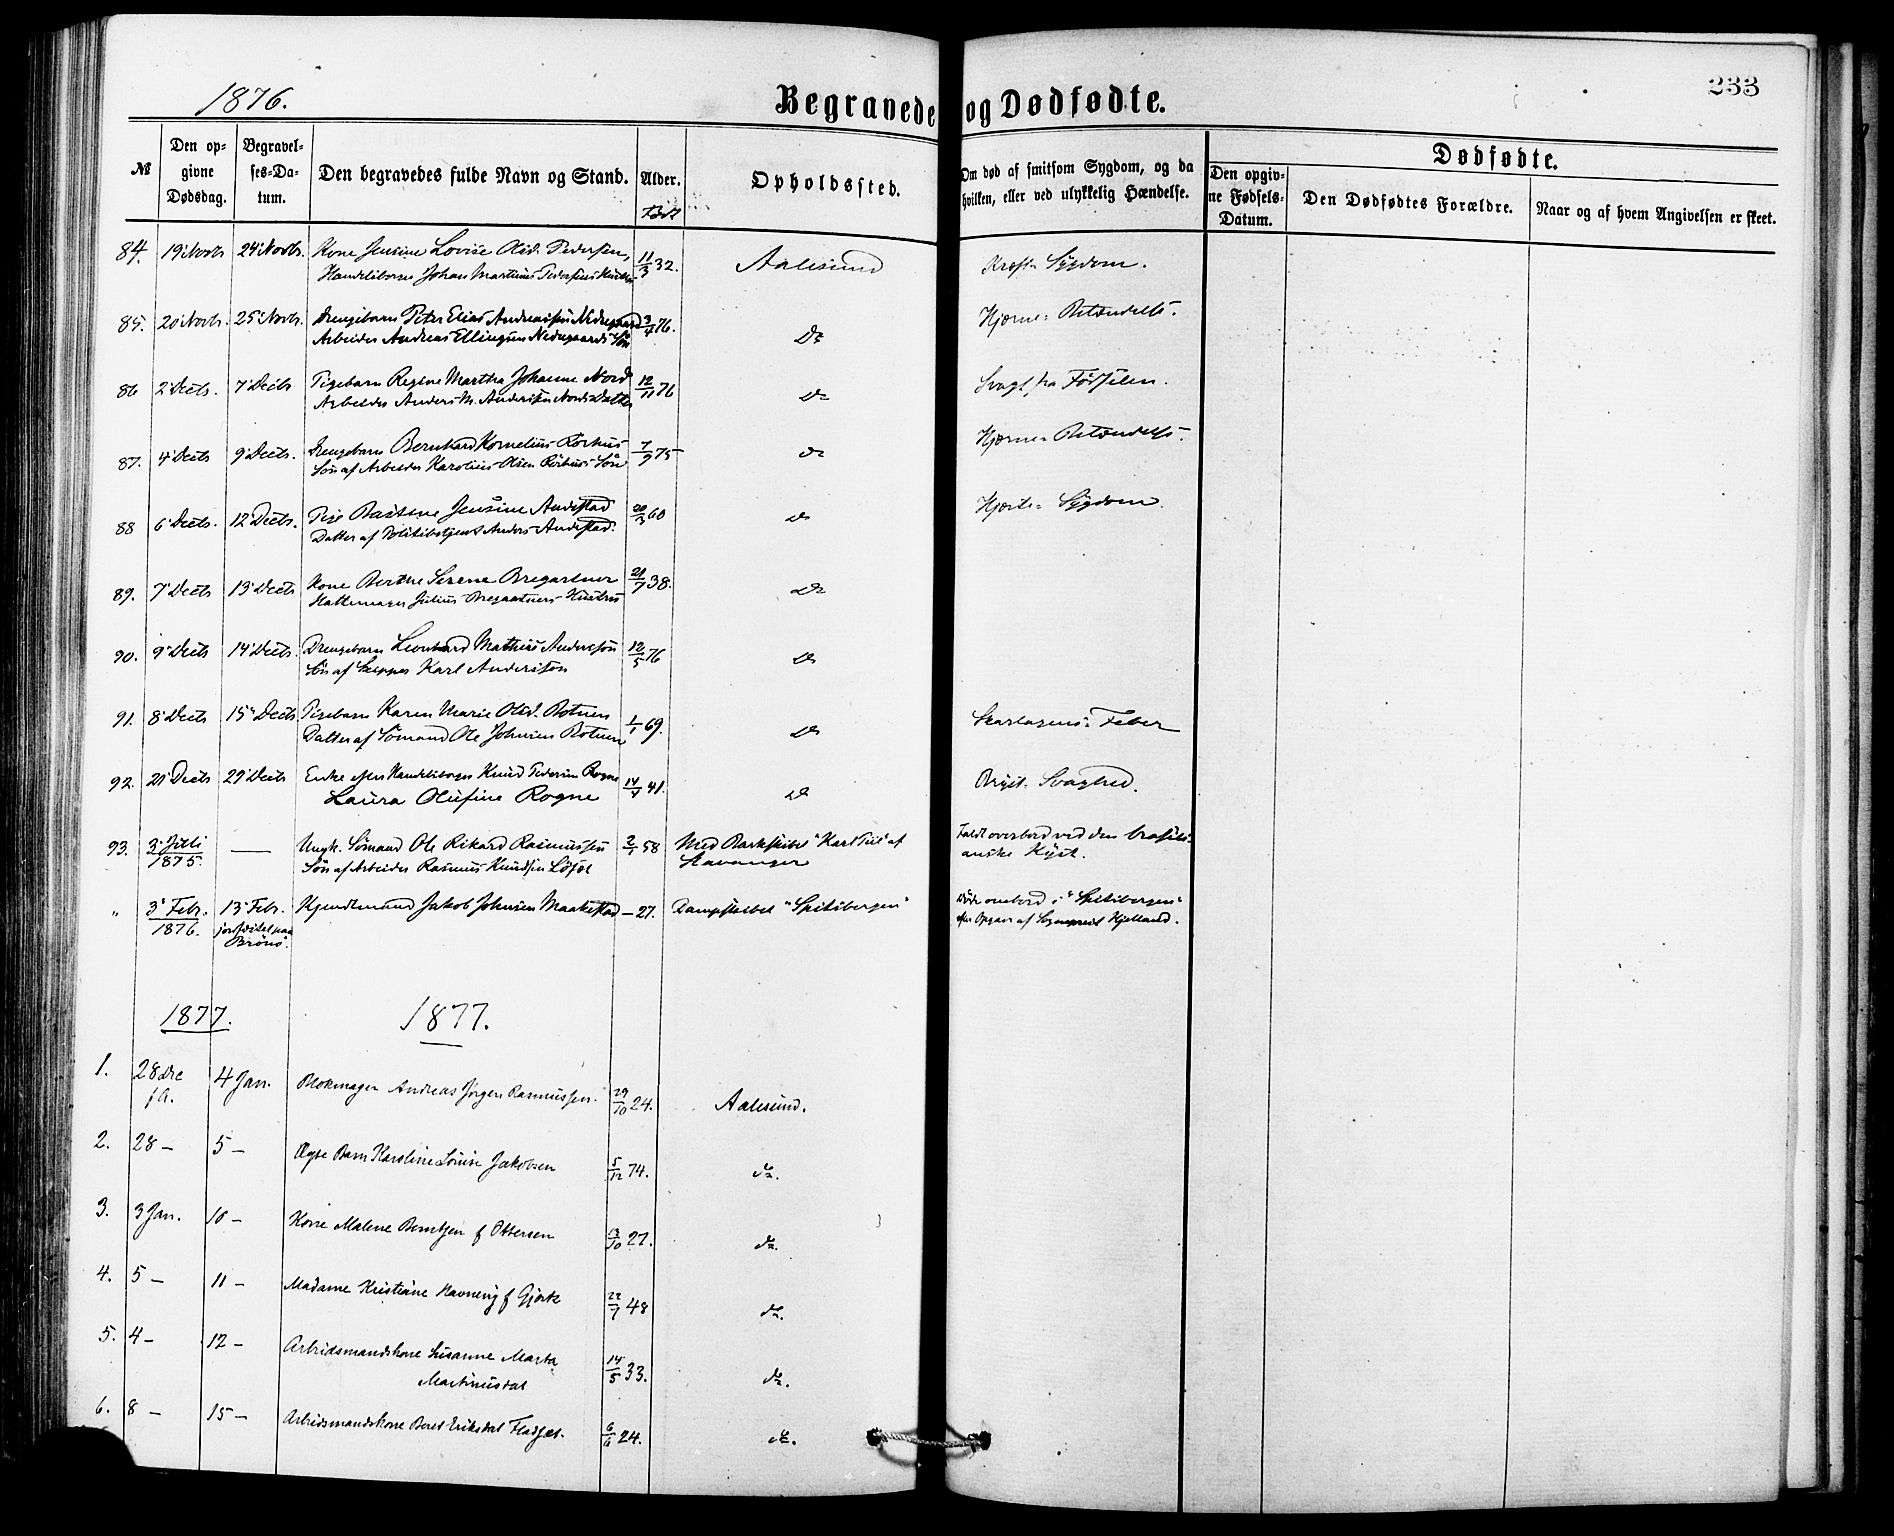 1876.
Begravede og Dødfødte.
233
№
Den op-
givne
Dødsdag.
Begravel-
ses-Da-
tum.
Den begravedes fulde Navn og Stand.
Alder.
Født
Opholdssted.
Om død af smitsom Sygdom, og da
hvilken, eller ved ulykkelig Hændelse.
Dødfødte.
Den opgiv-
ne Fødsels-
Datum.
Den Dødfødtes Forældre.
Naar og af hvem Angivelsen er skeet.
84. 19 Novb 24 Novb. Kone Jensine Lovise Olsd. Pedersen, 11/3 32. Aalesund Kræft-Sygdom.
Handelsborger Johan Martinus Pedersens Hustru
85. 20 Novb. 25 Novb. Drengebarn Peter Elias Andreassen Nedregaard 3/4 76. Do Hjerne-Betændelse.
Arbeider Andreas Ellingsen Nedregaards Søn
86 2 Decb. 7 Decb Pigebarn Regine Martha Johanne Nord 12/11 76 Do Svagt fra Fødselen.
Arbeider Anders M. Andersen Nords Datter
87. 4 Decb 9 Decb. Drengebarn Bernhard Kornelius Rørhus 7/9 75 Do Hjerne-Betændelse.
Søn af Arbeider Karolius Olsen Rørhus Søn
88 6 Decb. 12 Decb. Pige Jensine Andestad 20/3 60 Do Hjerte-Sygdom.
Datter af Politibetjent Anders Andestad.
89. 7 Decb 13 Decb Kone Berthe Serene Bregartner 21/7 38. Do
Hattemager Julius Bregartners Hustru
90. 9 Decb 14 Decb. Drengebarn Leonhard Mathias Anderssøn 12/5 76 Do
Søn af Skipper Karl Anderssøn
91. 8 Decb 15 Decb Pigebarn Karen Marie Olsd. Botnen 1/1 69. Do Skarlagens-Feber
Datter af Sømand Ole Johnsen Botnen
92. 21 Decb 29 Decb Enke efter Handelsborger Knud Pedersen Rogne 14/4 41. Do Bryst-Svaghed.
Laura Olufine Rogne
93. 3 Juli 1875. — Ungk. Sømand Ole Rikard Rasmussen 2/1 58 Med Barkskibet "Karl Pihl" af Faldt overbord ved den brasili-
Søn af Arbeider Rasmus Knudsen Stavanger anske Kyst.
" 3 Febr. 1876. 13 Febr. Jakob Johnsen Maakestad — 27. Dampskibet "Spitsbergen" Døde ombord i "Spitsbergen"
jordfæstet paa Brønø. efter Opgave af Sognepræst Kjelland.
1877. 1877.
1. 28 Dec f.A. 4 Jan. Blokmager Andreas Jørgen Rasmussen. 29/10 24. Aalesund.
2. 28 — 5 — Barn Karoline Lovise Jakobsen 5/12 74. do.
3. 3 Jan. 10 — Kone Malene Berntsen f Ottersen 13/10 27. do.
4. 5 — 11 — Madame Kristiane Havnevig f Gjørtz 22/7 48 do.
5. 4 — 12 — Arbeidsmandskone Susanne Marta 14/5 33. do.
Martinusdat
6. 8 — 15 — Arbeidsmandskone Beret Eriksdat Fladfjet. 6/6 24. do.